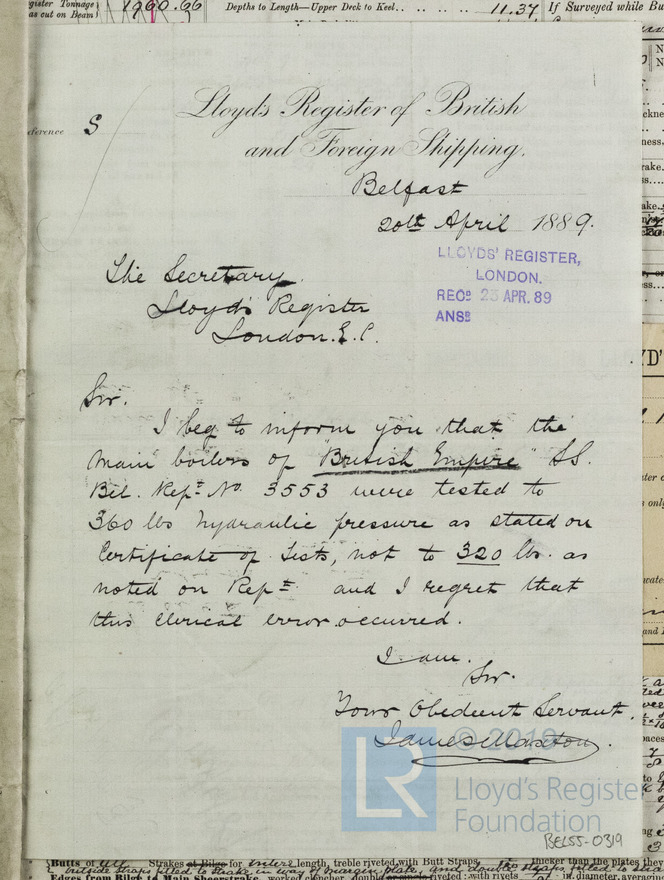 gister Tonnage
as cut on Beam
1960.66
Depths to Length—Upper Deck to Keel
11.37
If Surveyed while Bu
eference S
Lloyd's Register of British
and Foreign Shipping.
Belfast
20th April 1889.
LLOYDS' REGISTER,
LONDON.
RECD 23 APR. 89
ANSD
The Secretary
Lloyd's Register
London. E.C.
Sir.
I beg to inform you that the
main boilers of "British Empire" SS.
Bel. Rept No. 3553 were tested to
360 lbs hydraulic pressure as stated on
Certificate of Tests, not to 320 lbs. as
noted on Rept and I regret that
this clerical error occurred.
I am.
Sir.
Your Obedient Servant.
James Maxton.
© 2019
LR
Lloyd's Register
Foundation
BEL55-0319
Butts of all Strakes at Bilge for entire length, treble riveted with Butt Straps thicker than the plates they
Edges from Bilge to Main Sheerstrake, worked clencher, double riveted; with rivets in. diameter, averagin